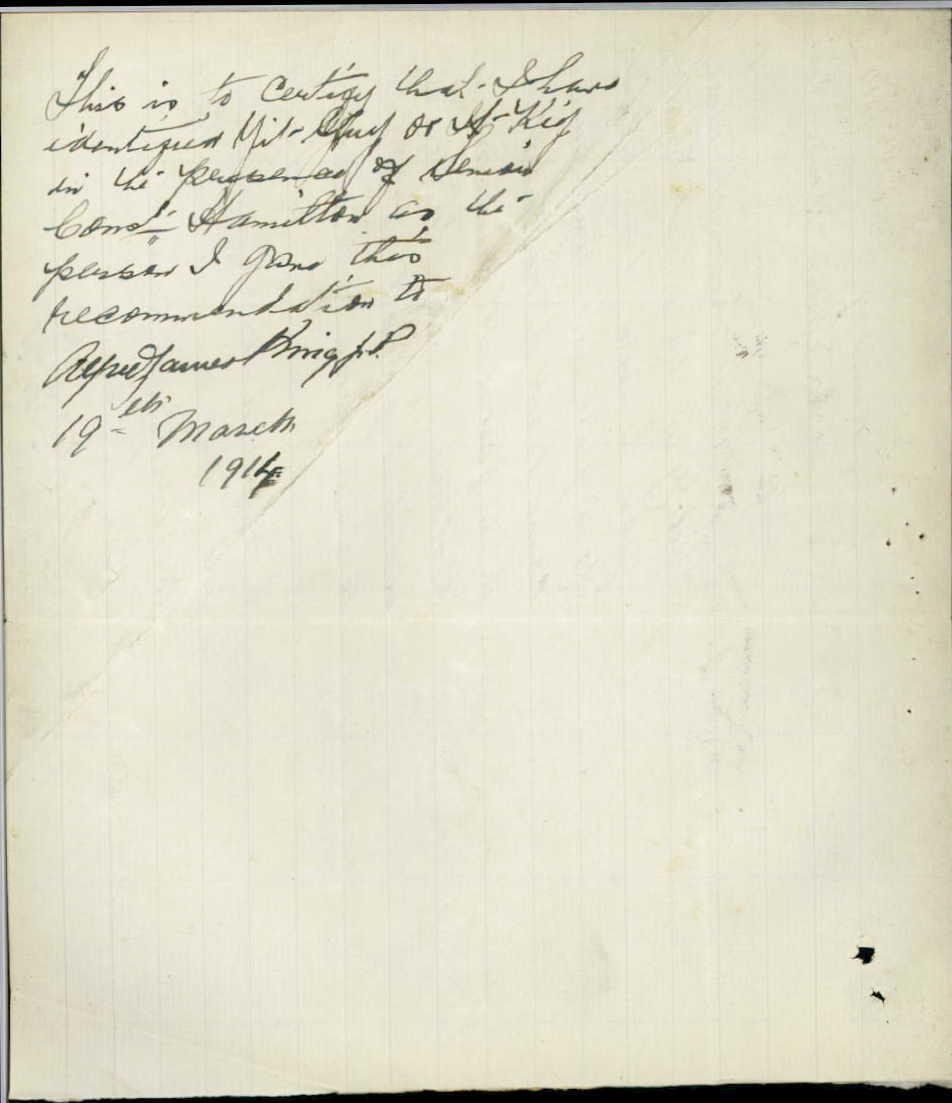 This is to Certify that I have
identified Yit- or At- Kig
in the presence of Senior
Const Hamilton as the
person I gave this
recommendation to
Alfred James King J.P.
19th March
1914